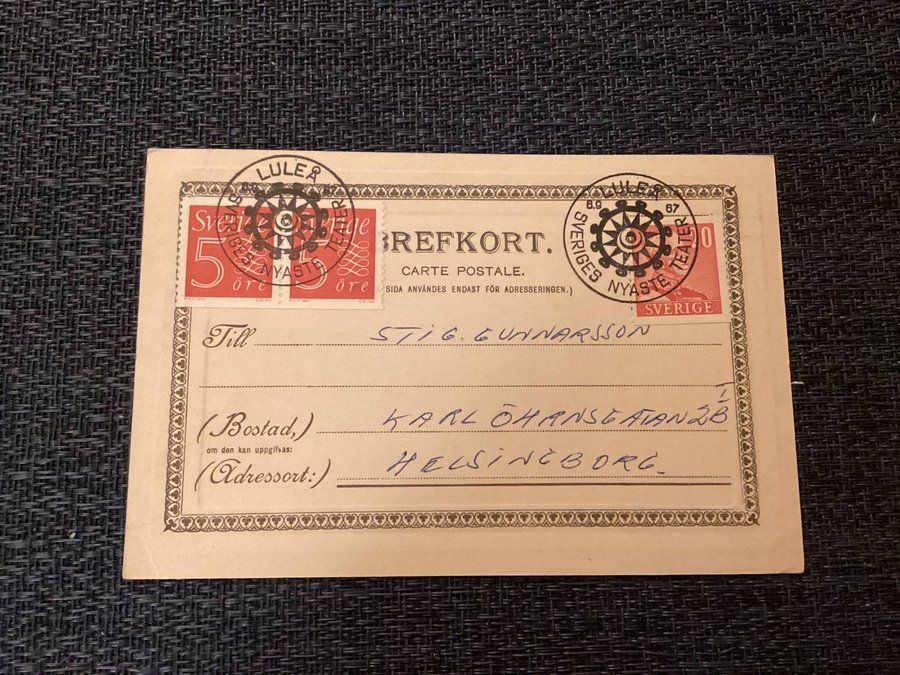 LULEÅ
SVERIGES NYASTE TEATER
Sverige
5
öre
Sverige
5
öre
BREFKORT.
CARTE POSTALE.
SIDA ANVÄNDES ENDAST FÖR ADRESSERINGEN.)
LULEÅ
6.9 67
SVERIGES NYASTE TEATER
SVERIGE
Till STIG. GUNNARSSON
(Bostad,) KARL ÖHRNSGATAN 2B
om den kan uppgifvas:
(Adressort:) HELSINGBORG.